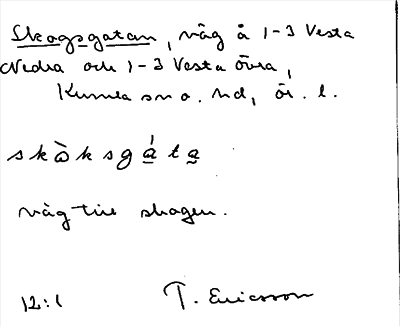 Skogsgatan, väg å 1-3 Vesta
Nedra och 1-3 Vesta Övra,
Kumla sn o. hd, ör. l.
skòksgáta
väg till skogen.
12:1 T. Ericsson